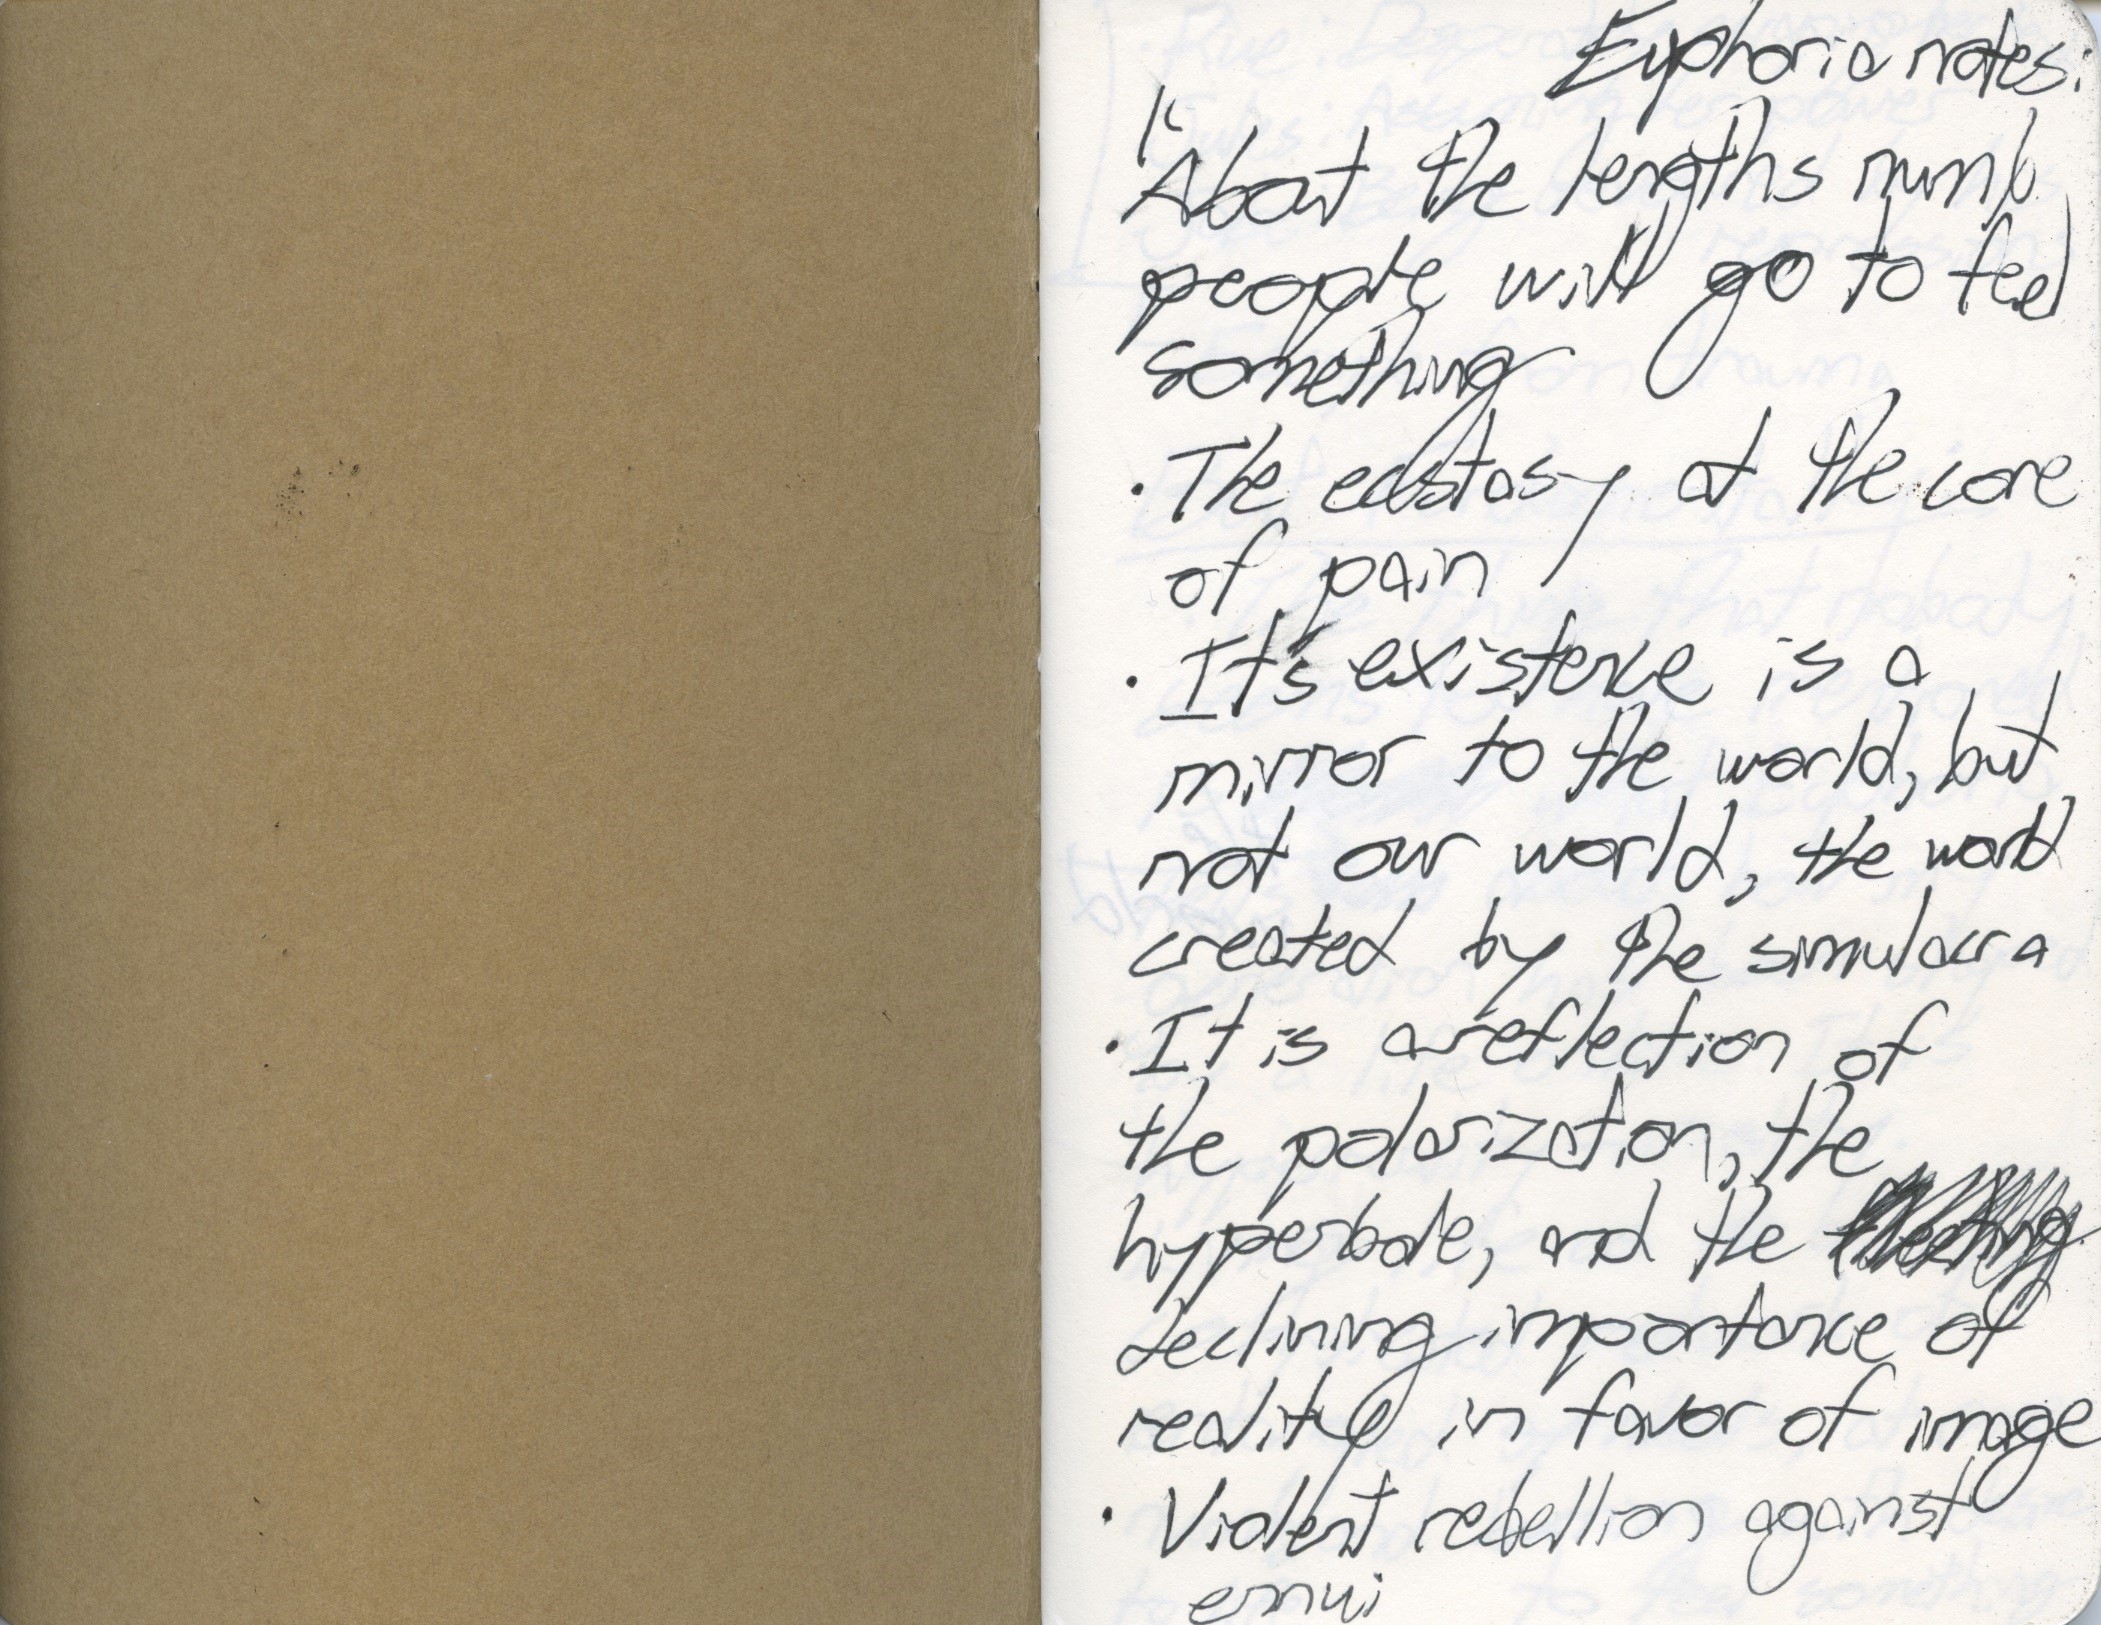 Euphoria notes:
"About the lengths numb
people will go to feel
something
• The ecstasy at the core
of pain
• It's existence is a
mirror to the world, but
not our world, the world
created by the simulacra
• It is a reflection of
the polarization, the
hyperbole, and the
declining importance of
reality in favor of image
• Violent rebellion against
ennui